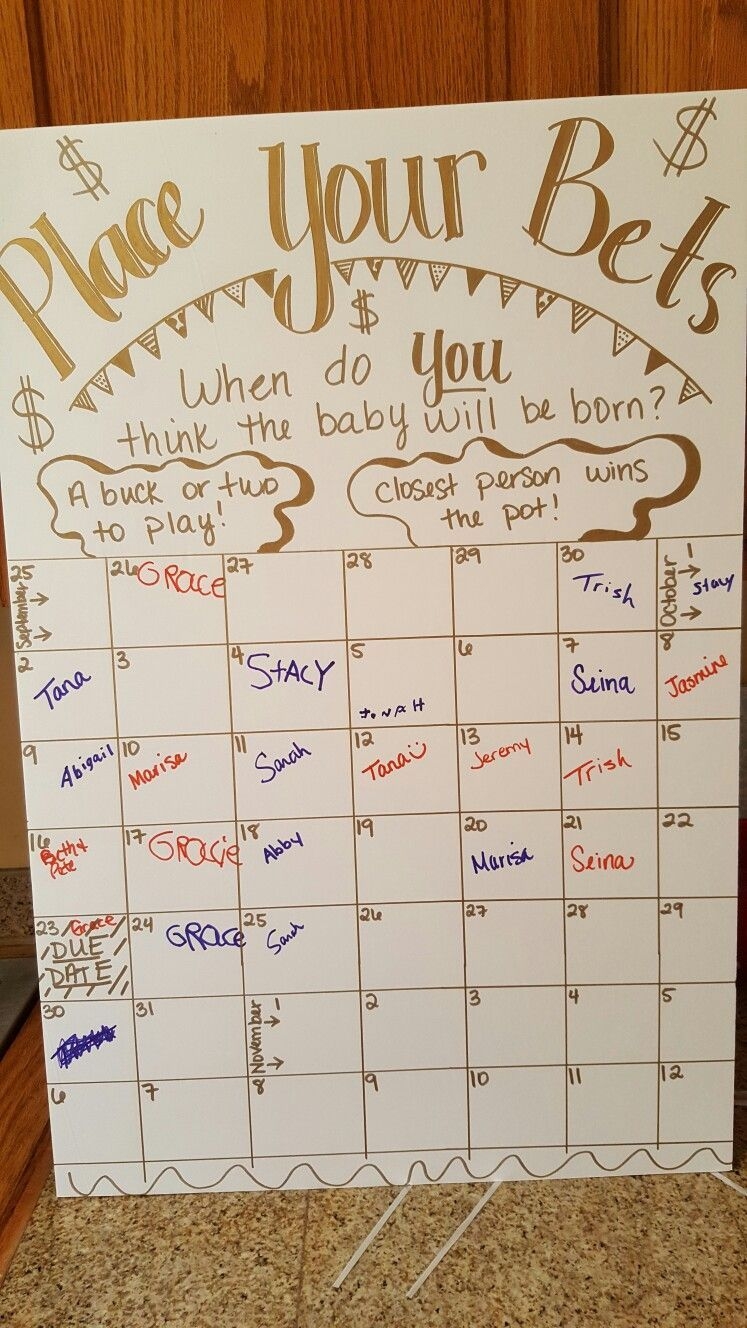 $ $
Place Your Bets
$
When do you
$
think the baby will be born?
A buck or two
to play!
closest person wins
the pot!
25 26 GRACE 27 28 29 30 Trish 1 stacy
September October
2 Tana 3 4 STACY 5 6 7 Seina 8 Jasmine
9 Abigail 10 Marisa 11 Sarah 12 Tana 13 Jeremy 14 Trish 15
16 17 GRaciE 18 Abby 19 20 Marisa 21 Seina 22
23 Grace 24 GRace 25 Sarah 26 27 28 29
DUE
DATE
30 31 1 2 3 4 5
November
6 7 8 9 10 11 12